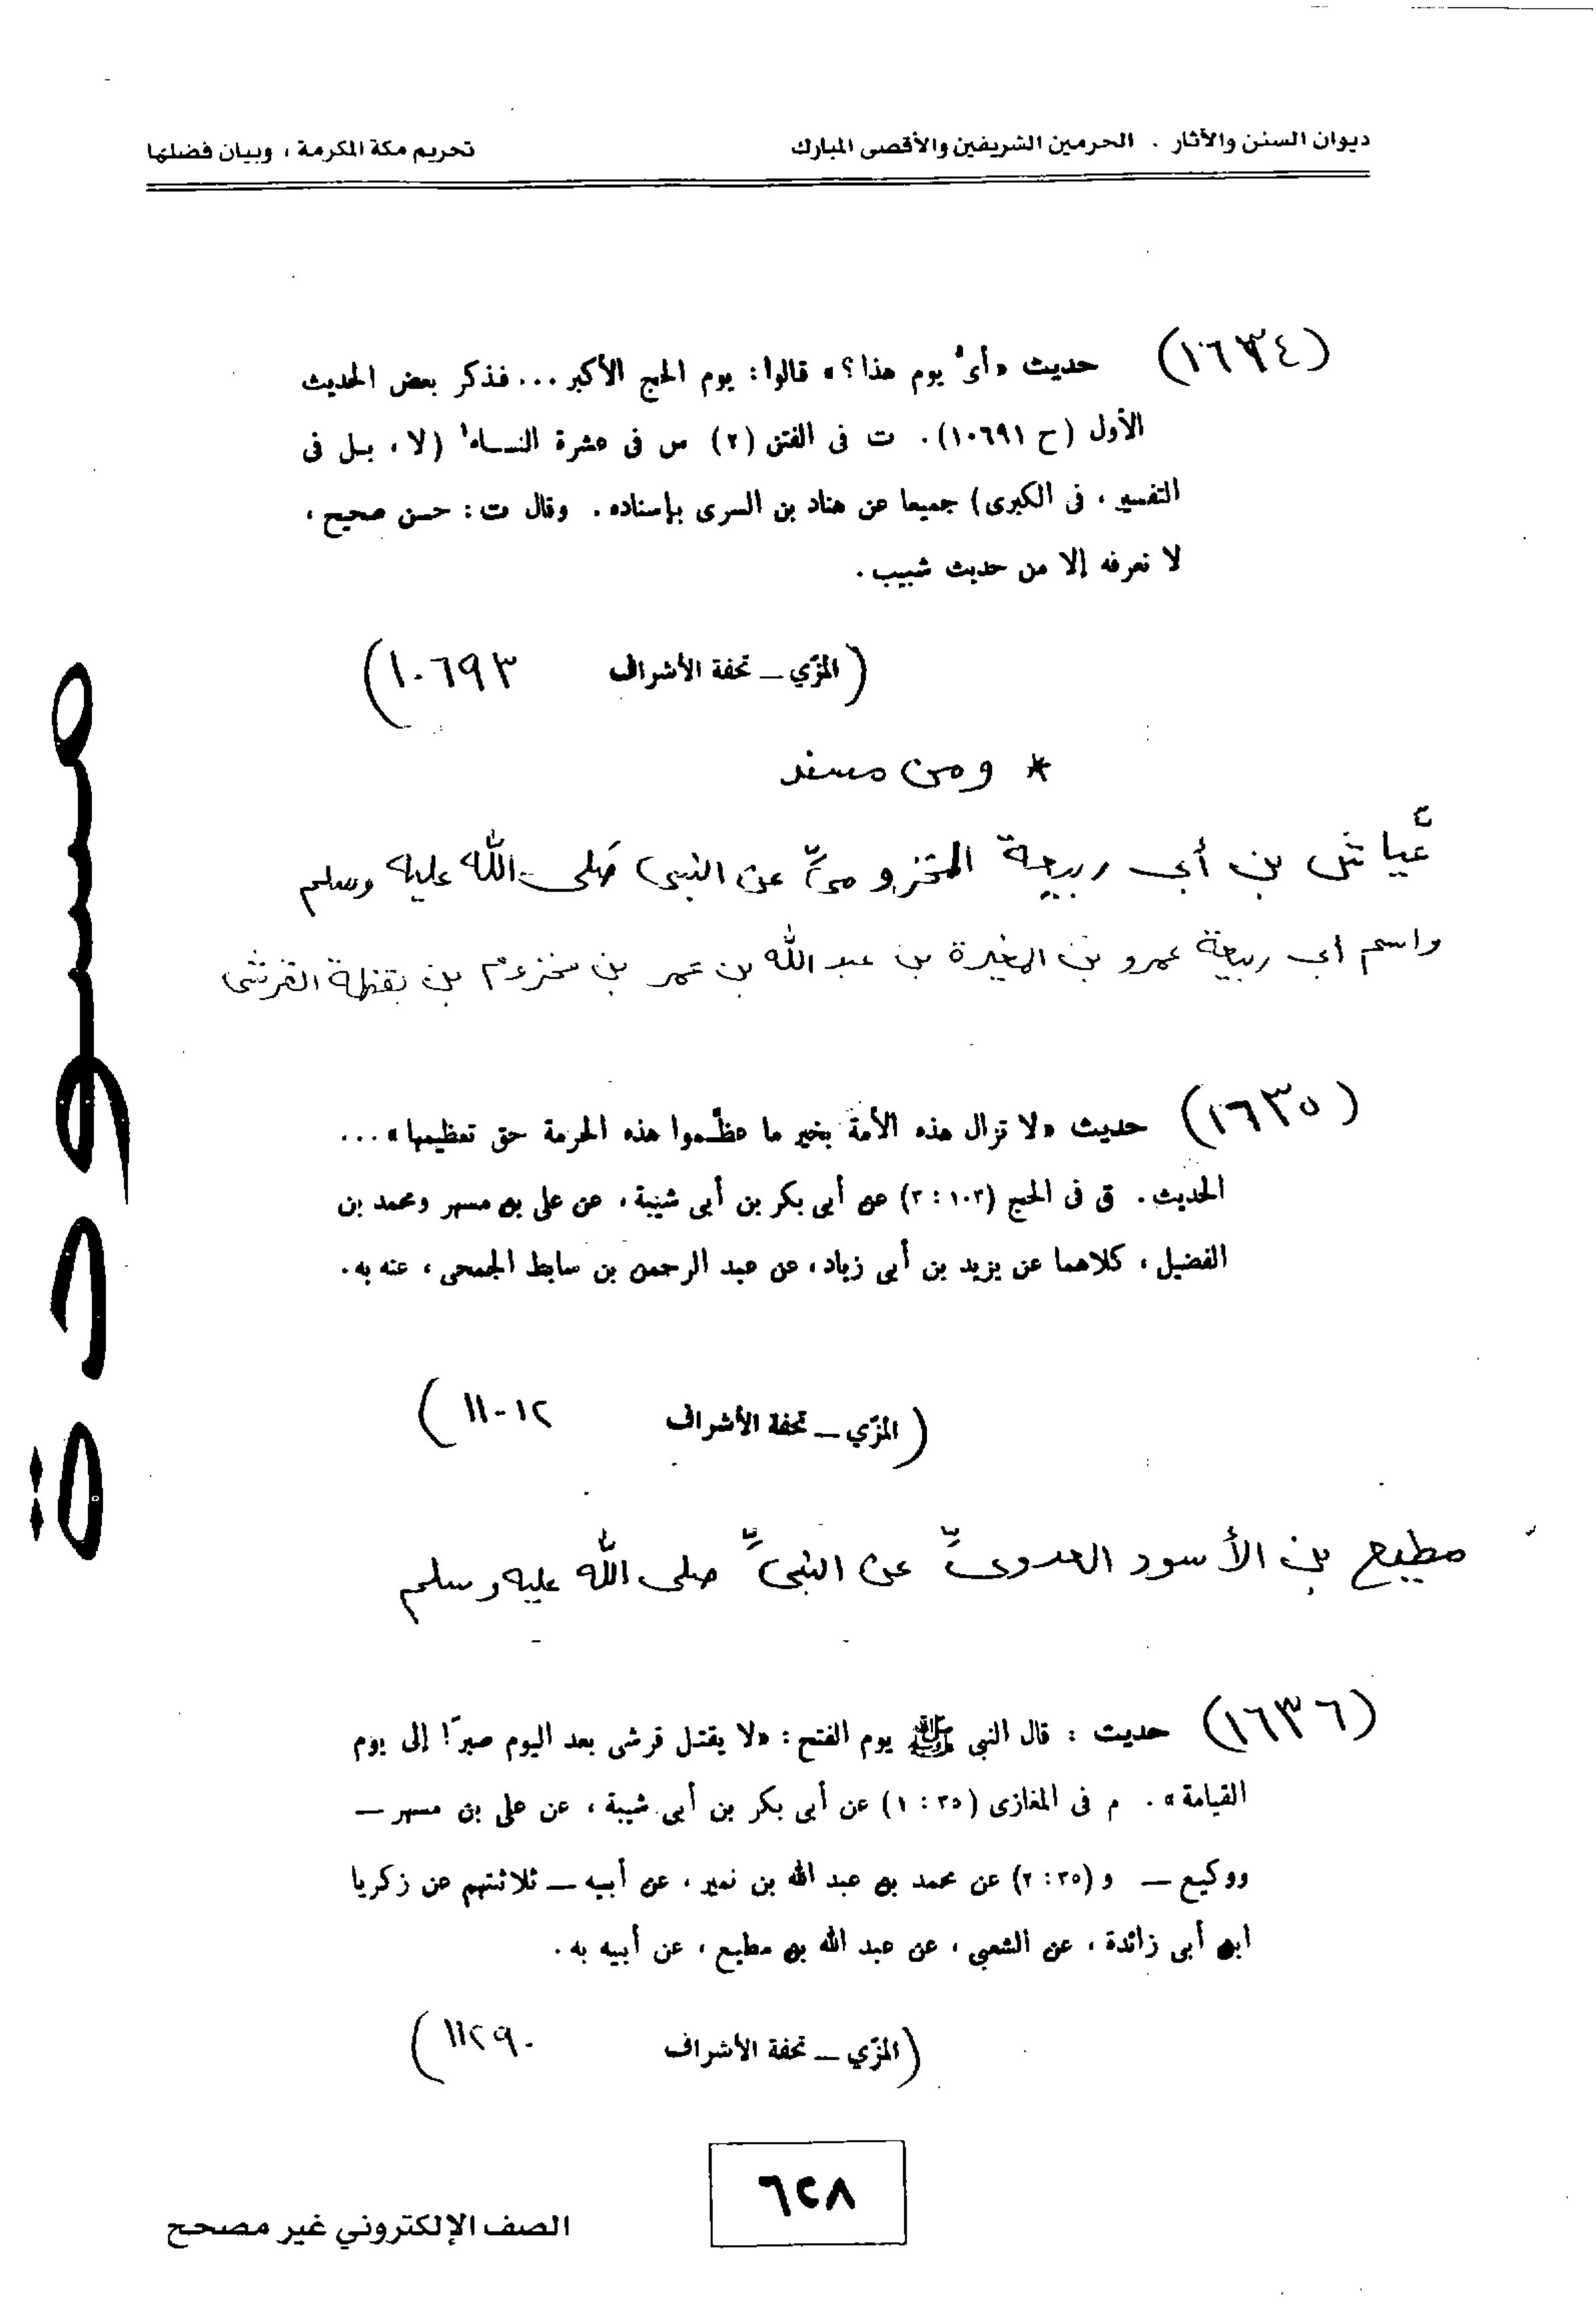 ديوان السنن والآثار . الحرمين الشريفين والأقصى المبارك
تحريم مكة المكرمة ، وبيان فضلها
(١٦٣٤) حديث «أىُّ يوم هذا؟» قالوا: يوم الحج الأكبر ... فذكر بعض الحديث
الأول (ح ١٠٦٩١). ت فى الفتن (٢) س فى عشرة النساء (لا ، بل فى
التفسير ، فى الكبرى) جميعا عن هناد بن السرى بإسناده . وقال ت : حسن صحيح ،
لا نعرفه إلا من حديث شبيب .
(المزّي ــ تحفة الأشراف ١٠٦٩٣)
* ومن مسند
عَيَّاش بن أبي ربيعة المخزوميِّ عن النبي صَلى الله عليه وسلم
واسم ابي ربيعة عمرو بن المغيرة بن عبد الله بن عمر بن مخزوم بن يقظة القرشي
(١٦٣٥) حديث «لا تزال هذه الأمة بخير ما عظّموا هذه الحرمة حق تعظيمها» ...
الحديث . ق فى الحج (١٠٣ : ٢) عن أبى بكر بن أبى شيبة ، عن على بن مسهر ومحمد بن
الفضيل ، كلاهما عن يزيد بن أبى زياد ، عن عبد الرحمن بن سابط الجمحى ، عنه به .
(المزّي ــ تحفة الأشراف ١١٠١٢)
مطيع بن الأسود العدويِّ عن النبيِّ صلى الله عليه وسلم
(١٦٣٦) حديث : قال النبى ﷺ يوم الفتح : «لا يقتل قرشى بعد اليوم صبرًا إلى يوم
القيامة» . م فى المغازى (٣٥ : ١) عن أبى بكر بن أبى شيبة ، عن على بن مسهر ــ
ووكيع ــ و (٣٥ : ٢) عن محمد بن عبد الله بن نمير ، عن أبيه ــ ثلاثتهم عن زكريا
ابن أبى زائدة ، عن الشعبى ، عن عبد الله بن مطيع ، عن أبيه به .
(المزّي ــ تحفة الأشراف ١١٢٩٠)
٦٢٨
الصف الإلكتروني غير مصحح
مسودة